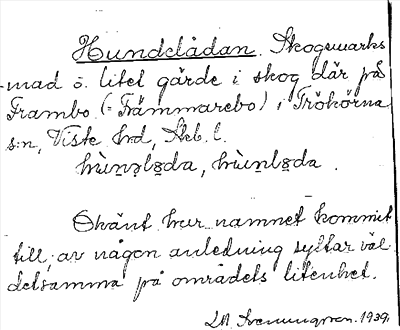 Hundelådan. Skogsmarks
-mad o. litet gärde i skog där på
Frambo (= Främmarebo) i Trökörna
s:n, Viste hrd, Skb. l.
hùnɘlåda, hùnlåda.
Okänt hur namnet kommit
till; av någon anledning syftar väl
detsamma på områdets litenhet.
Svenungsson. 1939.